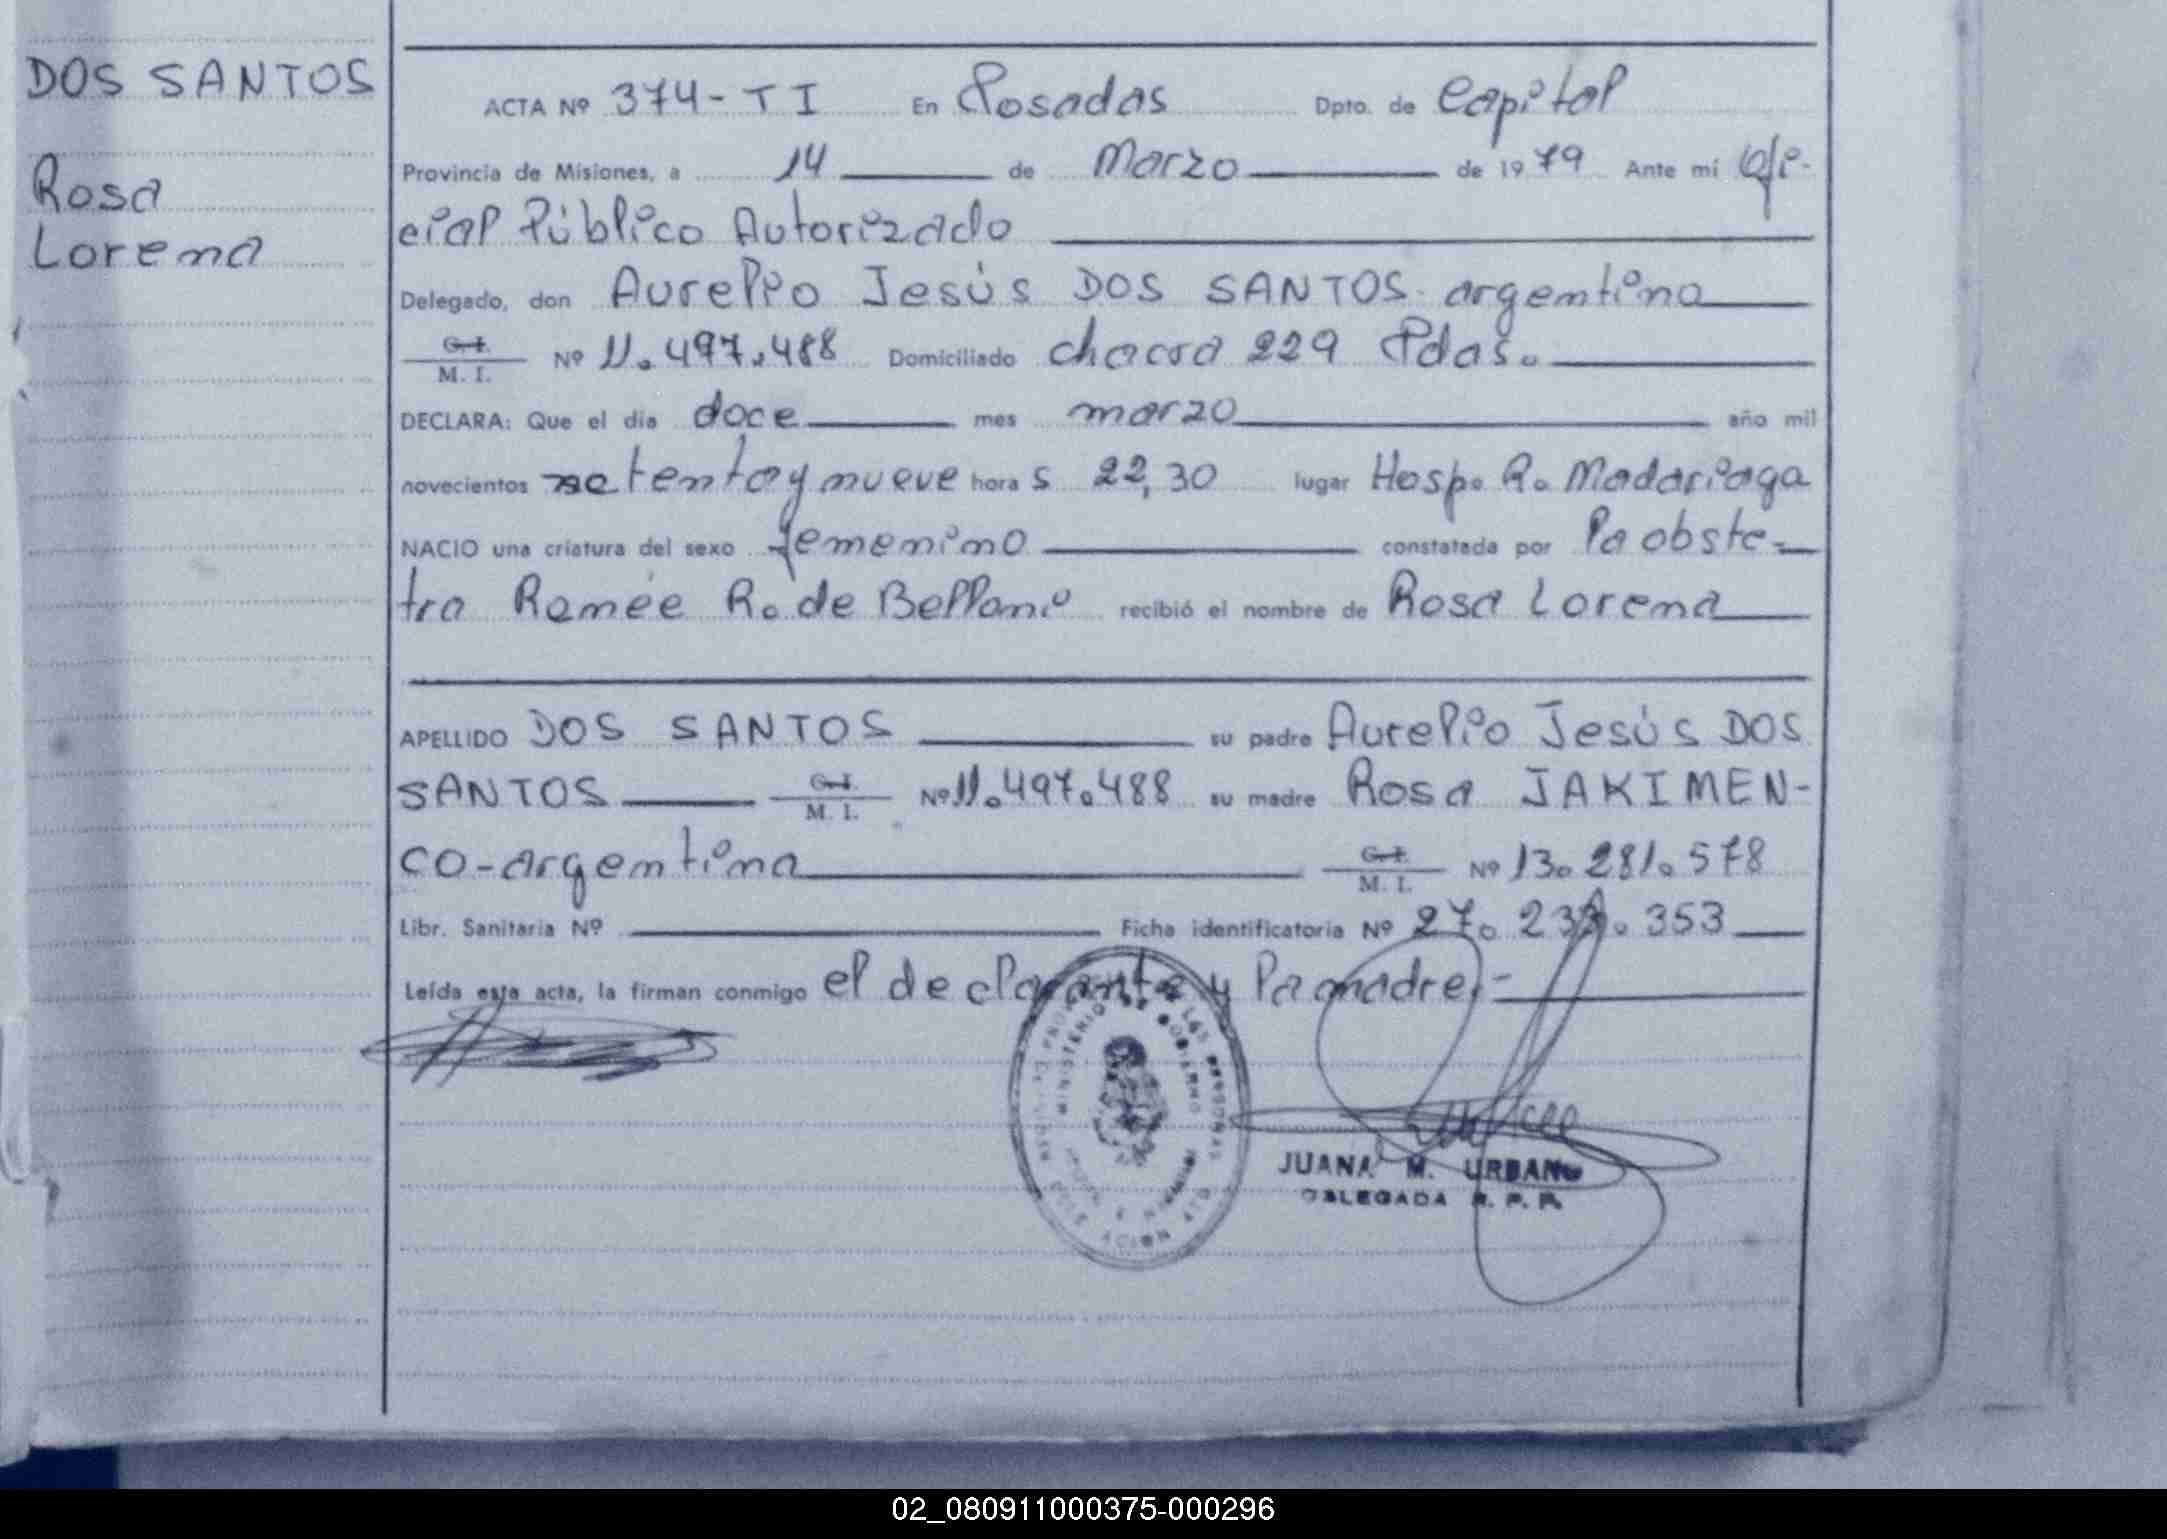 DOS SANTOS
Rosa
Lorena
ACTA Nº 374-TI En Posadas Dpto. de Capital
Provincia de Misiones, a 14 de Marzo de 1979 Ante mí Ofi-
cial Público Autorizado
Delegado, don Aurelio Jesús DOS SANTOS argentino
C.I.
M. I. Nº 11.497.488 Domiciliado chacra 229 Pdas.
DECLARA: Que el dia doce mes marzo año mil
novecientos setenta y nueve hora s 22,30 lugar Hosp. R. Madariaga
NACIO una criatura del sexo femenino constatada por la obste-
tra Renée R. de Bellani recibió el nombre de Rosa Lorena
APELLIDO DOS SANTOS su padre Aurelio Jesús DOS
SANTOS C.I. M. I. Nº 11.497.488 su madre Rosa JAKIMEN-
CO-argentina C.I. M. I. Nº 13.281.578
Libr. Sanitaria Nº Ficha identificatoria Nº 27.233.353
Leída esta acta, la firman conmigo el declarante y la madre.-
MINISTERIO DE GOBIERNO
LAS PERSONAS
JUANA M. URBANO
DELEGADA R. P. P.
02_080911000375-000296